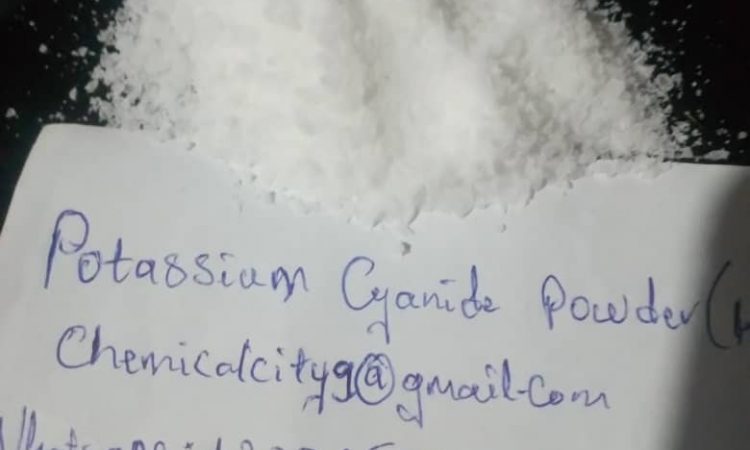 Potassium Cyanide Powder(
Chemicalcity9@gmail.com